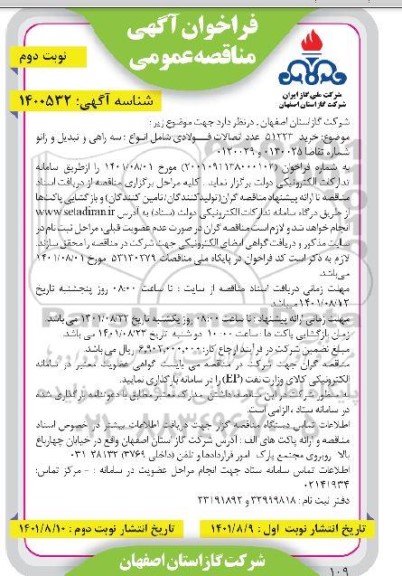 فراخوان آگهی
مناقصه عمومی
نوبت دوم
شرکت ملی گاز ایران
شرکت گاز استان اصفهان
شناسه آگهی: ۱۴۰۰۵۳۲
شرکت گاز استان اصفهان ، در نظر دارد جهت موضوع زیر :
موضوع: خرید ۵۱۲۲۳ عدد اتصالات فولادی شامل انواع : سه راهی و تبدیل و زانو
شماره تقاضا ۰۱۳۰۰۲۵ و ۰۱۲۰۰۲۹
به شماره فراخوان (۲۰۰۱۰۹۱۱۳۸۰۰۰۱۰۲) مورخ ۱۴۰۱/۰۸/۰۱ را از طریق سامانه
تدارکات الکترونیکی دولت برگزار نماید . کلیه مراحل برگزاری مناقصه از دریافت اسناد
مناقصه تا ارائه پیشنهاد مناقصه گران (تولید کنندگان / تامین کنندگان) و بازگشایی پاکت‌ها
از طریق درگاه سامانه تدارکات الکترونیکی دولت (ستاد) به آدرس www.setadiran.ir
انجام خواهد شد و لازم است مناقصه گران در صورت عدم عضویت قبلی، مراحل ثبت نام در
سایت مذکور و دریافت گواهی امضای الکترونیکی جهت شرکت در مناقصه را محقق سازند.
لازم به ذکر است کد فراخوان در پایگاه ملی مناقصات ۵۳۱۳۰۲۷۹ مورخ ۱۴۰۱/۰۸/۰۱
می‌باشد.
مهلت زمانی دریافت اسناد مناقصه از سایت : تا ساعت ۰۸:۰۰ روز پنجشنبه تاریخ
۱۴۰۱/۰۸/۱۲ می‌باشد
مهلت زمانی ارائه پیشنهاد : تا ساعت ۰۸:۰۰ روز یکشنبه تاریخ ۱۴۰۱/۰۸/۲۲ می باشد.
زمان بازگشایی پاکت ها : ساعت ۱۰:۰۰ دوشنبه تاریخ ۱۴۰۱/۰۸/۲۳ می باشد.
مبلغ تضمین شرکت در فرآیند ارجاع کار: ۶،۹۰۲،۰۰۰،۰۰۰ ریال می باشد.
مناقصه گران جهت شرکت در مناقصه می بایست گواهی عضویت معتبر در سامانه
الکترونیکی کالای وزارت نفت (EP) را در سامانه بارگذاری نمایید.
به منظور شرکت در این مناقصه داشتن مدارک معتبر مطابق با دعوتنامه بارگذاری شده
در سامانه ستاد ، الزامی است.
اطلاعات تماس دستگاه مناقصه گزار جهت دریافت اطلاعات بیشتر در خصوص اسناد
مناقصه و ارائه پاکت های الف : آدرس شرکت گاز استان اصفهان واقع در خیابان چهارباغ
بالا روبروی مجتمع پارک امور قراردادها و تلفن (داخلی ۳۷۶۹) ۳۸۱۳۲ ۰۳۱
اطلاعات تماس سامانه ستاد جهت انجام مراحل عضویت در سامانه : - مرکز تماس:
۰۲۱۴۱۹۳۴
دفتر ثبت نام : ۳۳۹۱۹۸۱۸ و ۲۳۱۹۱۸۹۲
تاریخ انتشار نوبت اول : ۱۴۰۱/۸/۹
تاریخ انتشار نوبت دوم : ۱۴۰۱/۸/۱۰
شرکت گاز استان اصفهان
۱۰۹